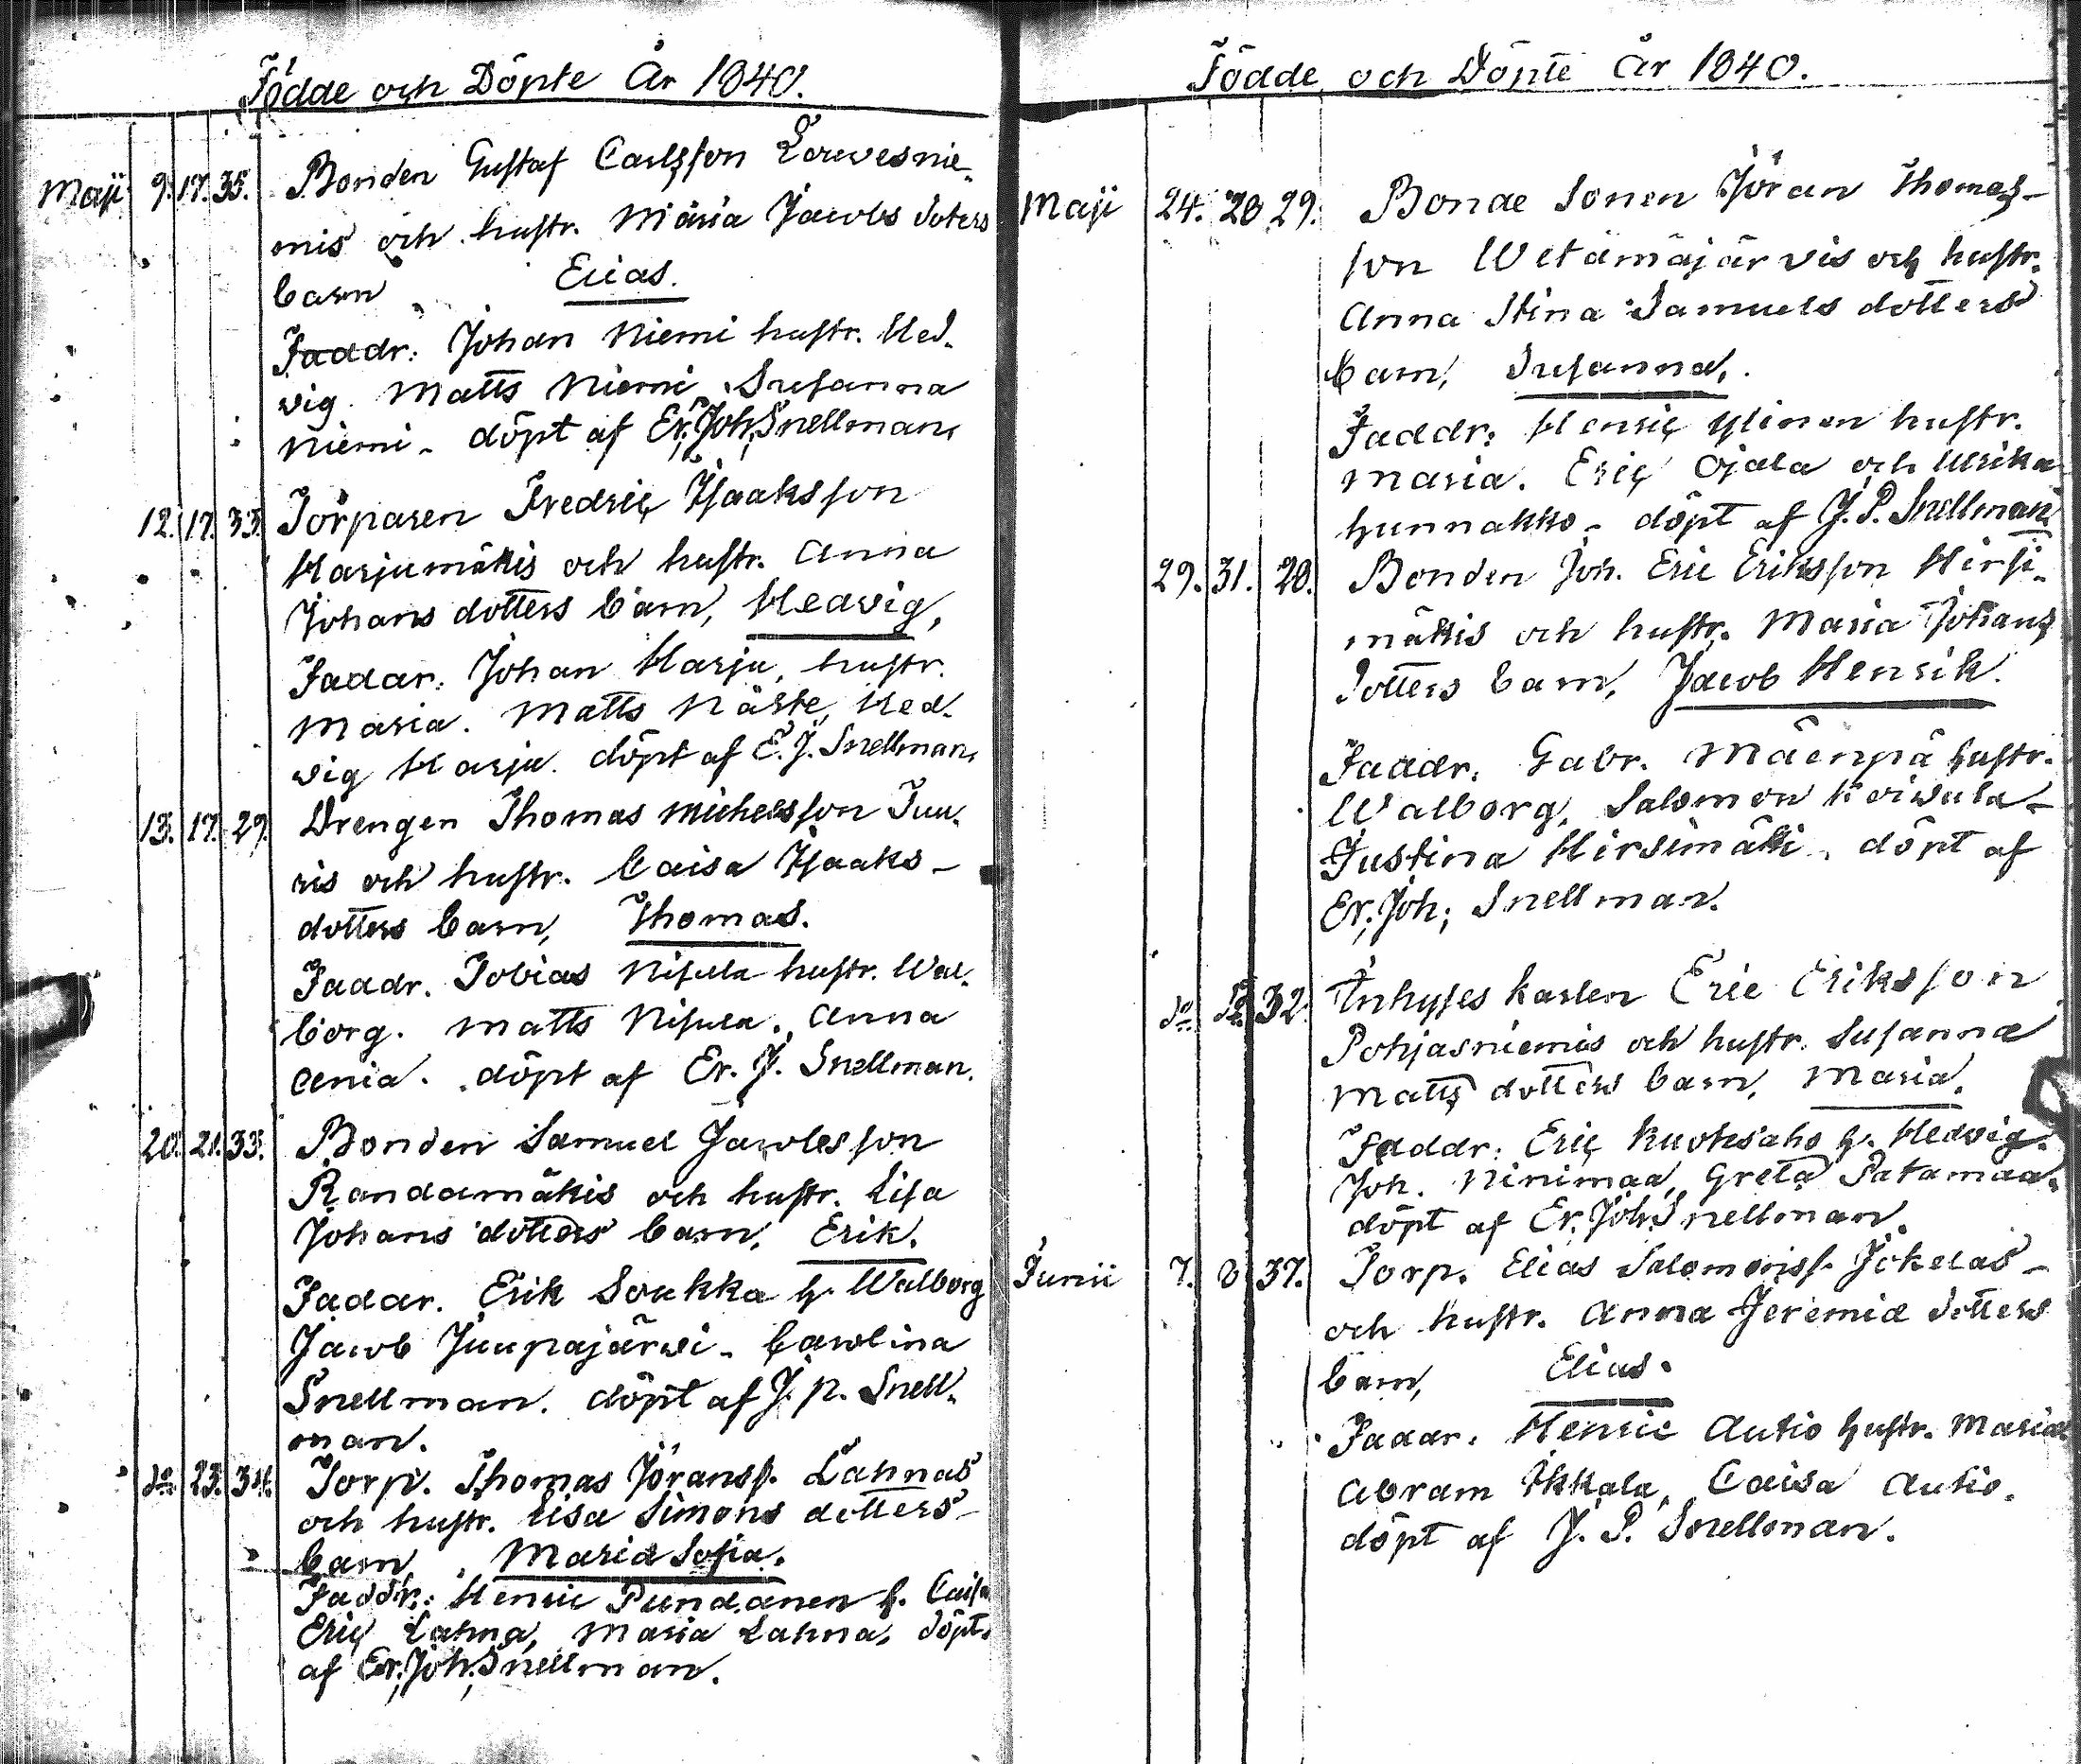 Födde och Döpte År 1840.
Maji 9. 17. 35. Bonden Gustaf Carlsson Louvesnie-
mis och hustr. Maria Jacobs doters
barn Elias.
Faddr: Johan Niemi hustr. Hed-
vig. Matts Niemi, Susanna
Niemi - döpt af Er. Joh. Snellman.
12. 17. 33. Torparen Fredric Isaaksson
Harjumäkis och hustr. Anna
Johans dotters barn, Hedvig,
Faddr: Johan Harju, hustr.
Maria. Matts Närte, Hed-
vig Harju. döpt af E. J. Snellman.
13. 17. 29. Drengen Thomas Michelsson Juu-
ris och hustr. Caisa Isaaks-
dotters barn, Thomas.
Faddr. Tobias Nisula hustr. Wal-
borg. Matts Nisula. Anna
Ania. döpt af Er. J. Snellman.
20. 21. 33. Bonden Samuel Jacobsson
Randamäkis och hustr. Lisa
Johans dotters barn, Erik.
Faddr. Erik Soukka h. Walborg
Jacob Juupajärwi - Carolina
Snellman. döpt af J. P. Snell-
man.
do 23. 34. Torp. Thomas Jöranss. Lahnas
och hustr. Lisa Simons dotters
barn, Maria Sofia.
Faddr: Henric Pundanen h. Caisa
Eric Lahna, Maria Lahna, döpt.
af Er. Joh. Snellman.
Födde och Döpte År 1840.
Maji 24. 28 29. Bonde Sonen Jöran Thomas-
son Wetämäjärvis och hustr.
Anna Stina Samuels dotters
barn, Susanna.
Faddr: Henric Ylinen hustr.
Maria. Eric Ojala och Ulrika
Hunnakko - döpt af J. P. Snellman
29. 31. 28. Bonden Joh. Eric Eriksson Hirsi-
mäkis och hustr. Maria Johans
dotters barn, Jacob Henrik.
Faddr. Gabr. Mäenpä hustr.
Walborg, Salomon Koiwula-
Justina Hirsimäki, döpt af
Er. Joh; Snellman.
do do 32. Inhyses karlen Eric Eriksson
Pohjasniemis och hustr. Susanna
Matts dotters barn, Maria.
Faddr: Eric Kuoksaho h. Hedvig.
Joh. Ninimaa, Greta Patamaa.
döpt af Er. Joh. Snellman.
Junii 7. 8 37. Torp. Elias Salomonss. Jokelas-
och hustr. Anna Jeremia dotters
barn, Elias.
Faddr. Henric Autio hustr. Maria
Abram Ikkala, Caisa Autio.
döpt af J. P. Snellman.